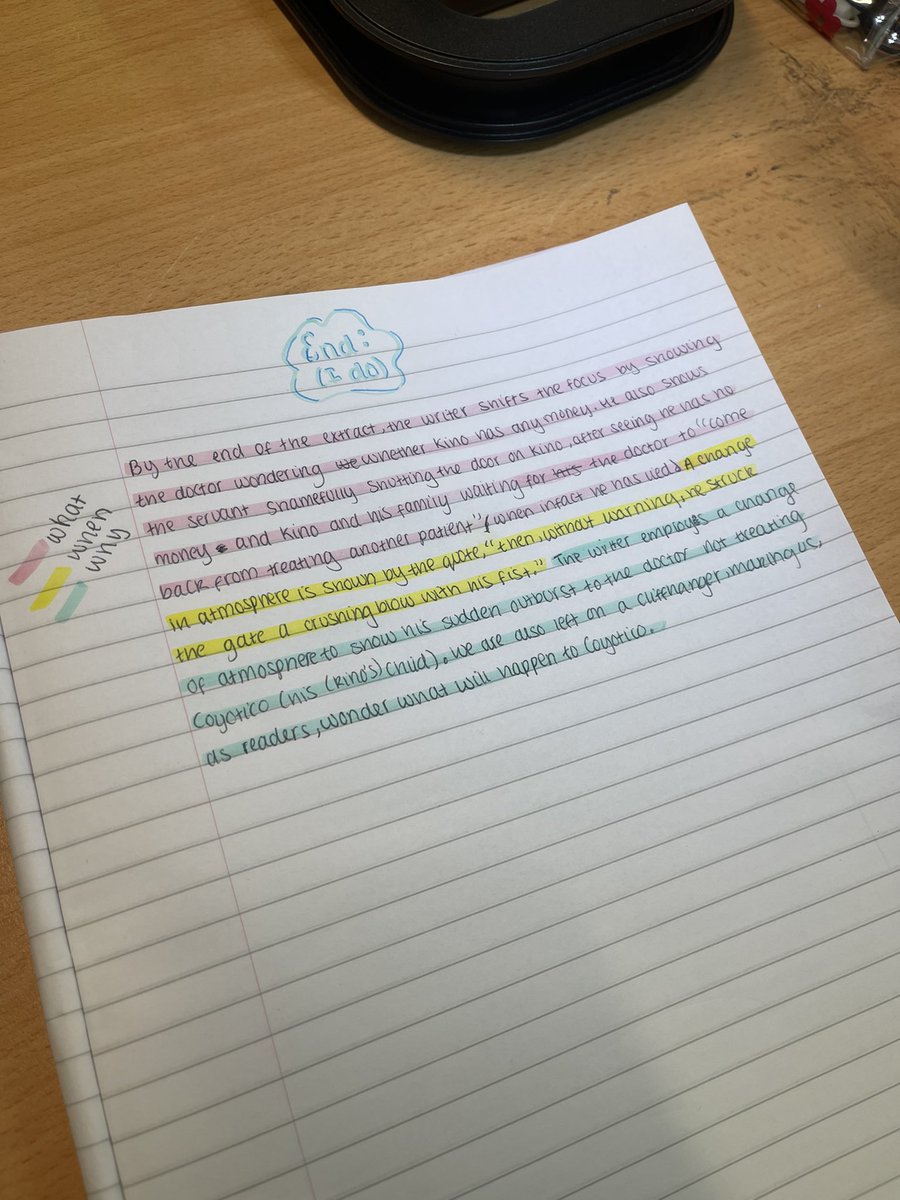 End:
(I do)
what
when
why
By the end of the extract, the writer shifts the focus by showing
the doctor wondering we whether Kino has any money. He also shows
the servant shamefully shutting the door on Kino, after seeing he has no
money and Kino and his family waiting for the doctor to "come
back from treating another patient", when infact he has lied. A change
in atmosphere is shown by the quote, "then, without warning, he struck
the gate a crushing blow with his fist." The writer employs a change
of atmosphere to show his sudden outburst to the doctor not treating
Coyotico (his (Kino's) child). We are also left on a cliffhanger, making us,
as readers, wonder what will happen to Coyotico.